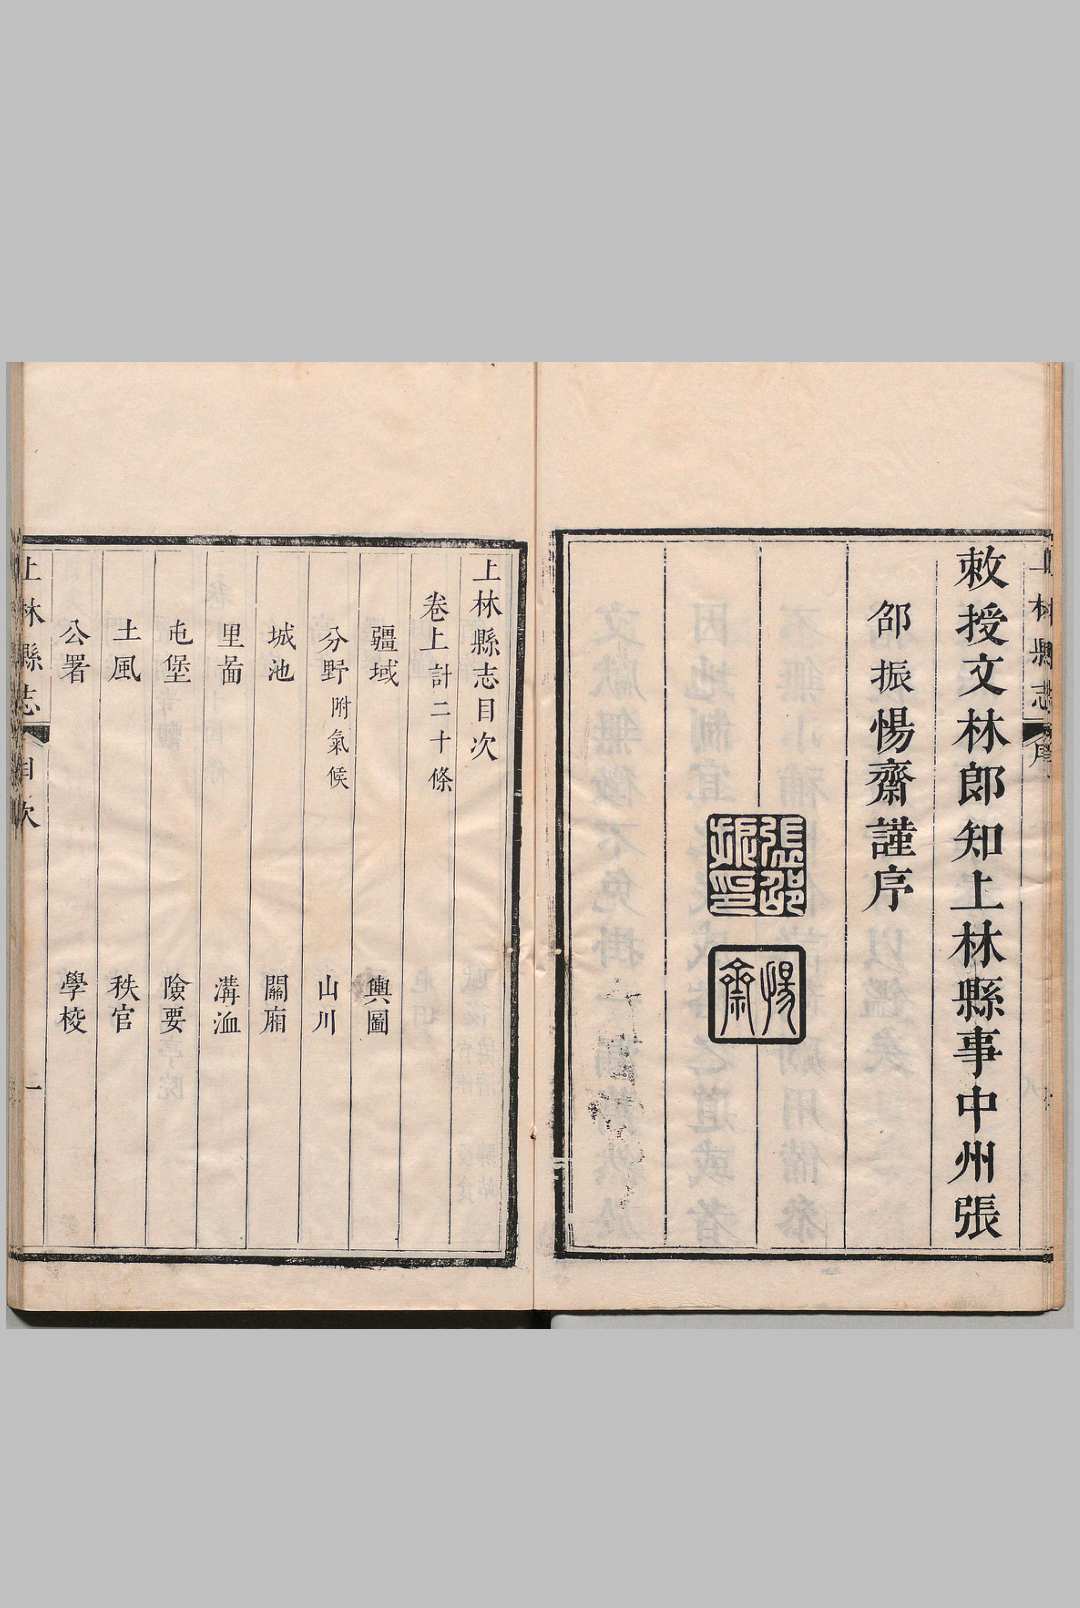 敕授文林郎知上林縣事中州張
邵振惕齋謹序
張邵振印
惕齋
上林縣志
序
上林縣志目次
卷上計二十條
疆域 輿圖
分野附氣候 山川
城池 關廂
里啚 溝洫
屯堡 險要
土風 秩官
公署 學校
上林縣志
目次
一